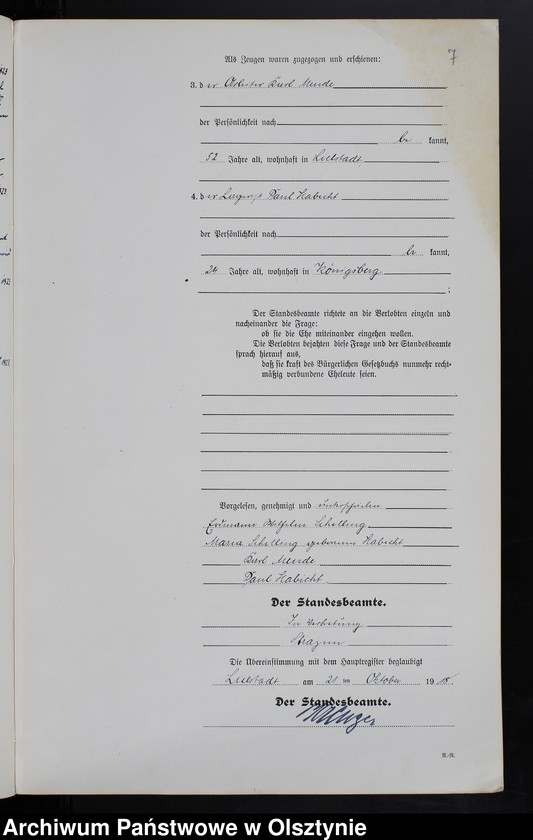 7
Als Zeugen waren zugezogen und erschienen:
3. der Arbeiter Karl Mende
der Persönlichkeit nach
be kannt,
52 Jahre alt, wohnhaft in
4. der Paul Habicht
der Persönlichkeit nach
be kannt,
24 Jahre alt, wohnhaft in Königsberg
;
Der Standesbeamte richtete an die Verlobten einzeln und
nacheinander die Frage:
ob sie die Ehe miteinander eingehen wollen.
Die Verlobten bejahten diese Frage und der Standesbeamte
sprach hierauf aus,
daß sie kraft des Bürgerlichen Gesetzbuchs nunmehr recht-
mäßig verbundene Eheleute seien.
Vorgelesen, genehmigt und unterschrieben
Erdmann Wilhelm Schilling
Maria Schilling geborene Habicht
Karl Mende
Paul Habicht
Der Standesbeamte.
In Vertretung
Die Übereinstimmung mit dem Hauptregister beglaubigt
am 21 ten Oktober 1918.
Der Standesbeamte.
Archiwum Państwowe w Olsztynie